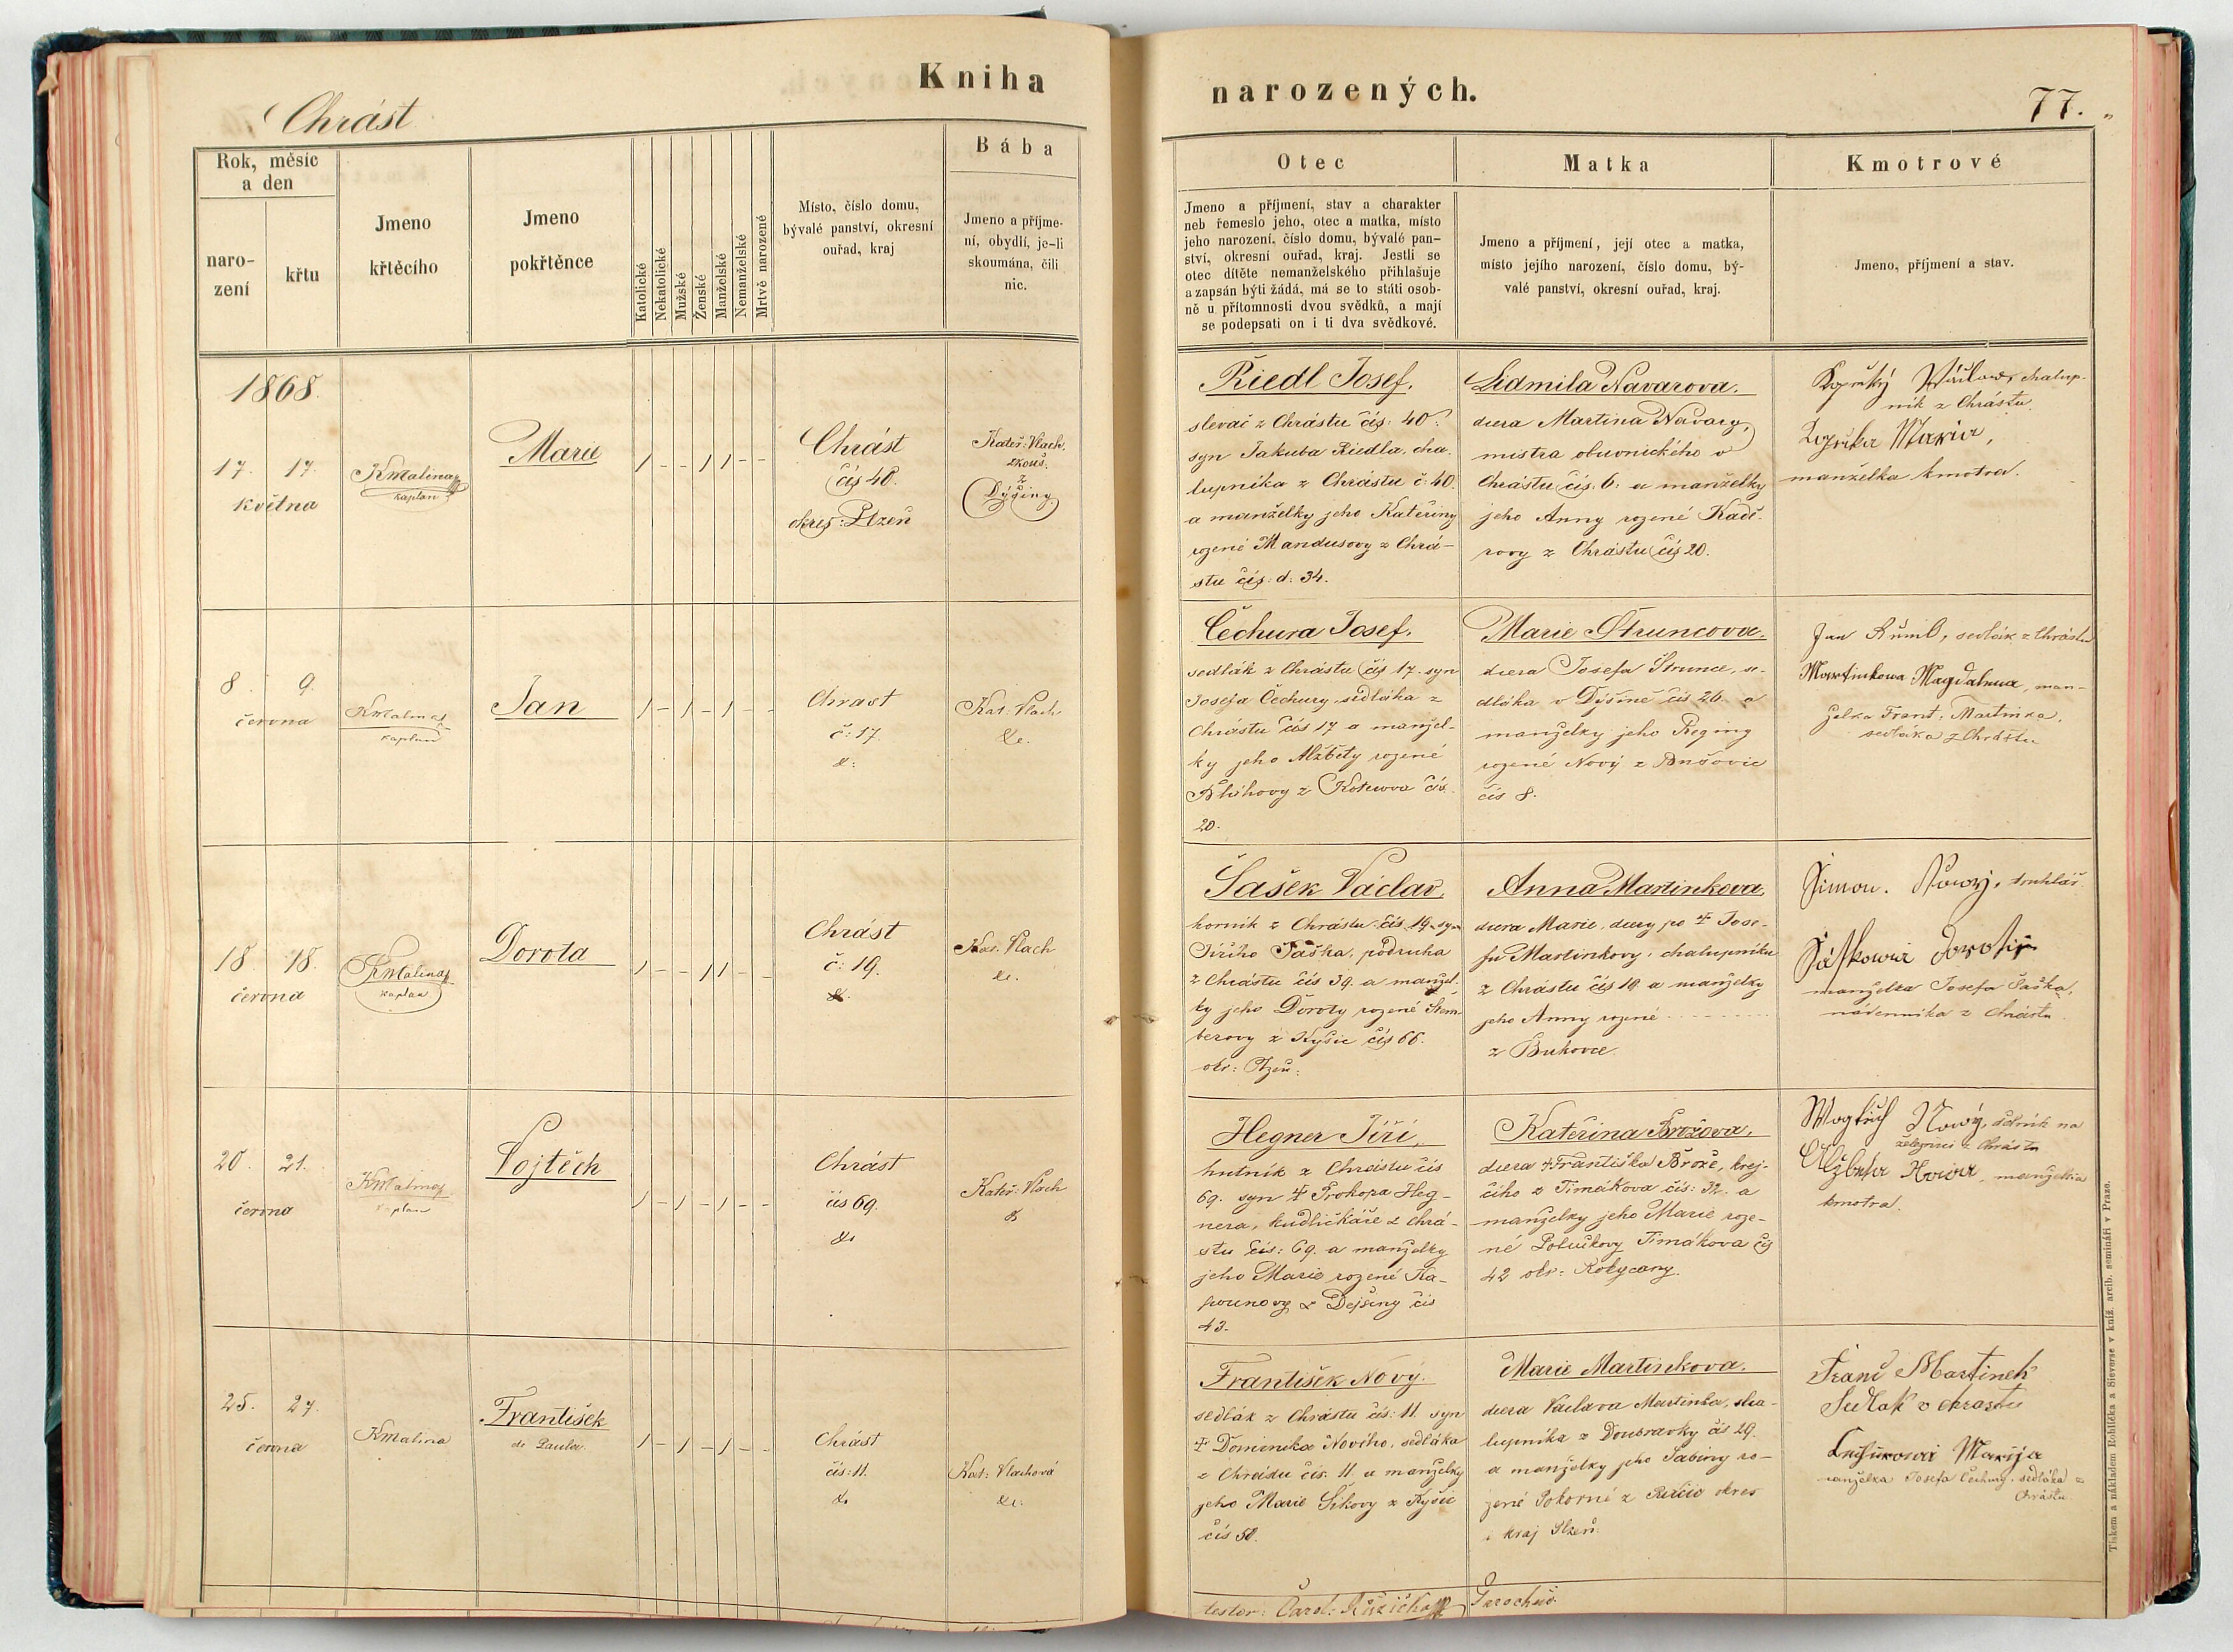 Kniha
Chrást
Rok, měsíc
a den
naro-
zení
křtu
Jmeno
křtěcího
Jmeno
pokřtěnce
Katolické
Nekatolické
Mužské
Ženské
Manželské
Nemanželské
Mrtvě narozené
Místo, číslo domu,
bývalé panství, okresní
ouřad, kraj
Bába
Jmeno a příjme-
ní, obydlí, je-li
skoumána, čili
nic.
1868.
17. 17.
května
Kmalina
kaplan
Marie
1 - - 1 1 - -
Chrást
čís 40.
okres: Plzeň
Kateř: Vlach.
zkouš:
z
Dýšiny
8. 9.
června
Kmalina
kaplan
Jan
1 - 1 - 1 - -
Chrast
č: 17.
Kat. Vlach
18. 18.
června
Kmalina
kaplan
Dorota
1 - - 1 1 - -
Chrást
č: 19.
Kat. Vlach
20. 21.
června
Kmalina
kaplan
Vojtěch
1 - 1 - 1 - -
Chrást
čís 69.
Kateř: Vlach
25. 27.
června
Kmalina
František
de Paula.
1 - 1 - 1 - -
Chrást
čís: 11.
Kat: Vlachová
narozených.
77.
Otec
Matka
Kmotrové
Jmeno a příjmení, stav a charakter
neb řemeslo jeho, otec a matka, místo
jeho narození, číslo domu, bývalé pan-
ství, okresní ouřad, kraj. Jestli se
otec dítěte nemanželského přihlašuje
a zapsán býti žádá, má se to státi osob-
ně u přítomnosti dvou svědků, a mají
se podepsati on i ti dva svědkové.
Jmeno a příjmení, její otec a matka,
místo jejího narození, číslo domu, bý-
valé panství, okresní ouřad, kraj.
Jmeno, příjmení a stav.
Riedl Josef.
slevač z Chrástu čís: 40.
syn Jakuba Riedla, cha-
lupníka z Chrástu č: 40.
a manželky jeho Kateřiny
rozené Mandusovy z Chrá-
stu čís: d: 34.
Lidmila Navarova.
dcera Martina Navary,
mistra obuvnického v
Chrástu čís: 6: a manželky
jeho Anny rozené
z Chrástu čís 20.
Václav, chalup-
ník z Chrástu.
Maria,
manželka kmotra.
Čechura Josef.
sedlák z Chrástu čís 17. syn
Josefa Čechury, sedláka z
Chrástu čís 17 a manžel-
ky jeho Alžběty rozené
čís
20.
Marie Štruncova.
dcera Josefa Štrunce, se-
dláka v Dýšině čís 26. a
manželky jeho Reginy
rozené Nový z Bušovic
čís 8.
Jan, sedlák z Chrástu
Martinkowa Magdalena, man-
želka Frant. Martinka,
sedláka z Chrástu
Šašek Václav,
horník z Chrástu čís 19. syn
Jiřího Šaška, podruha
z Chrástu čís 39. a manžel-
ky jeho Doroty rozené Štem-
berovy z Kyšic čís 66.
okr: Plzeň:
Anna Martinkova,
dcera Marie, dcery po † Jose-
fu Martinkovy, chalupníku
z Chrástu čís 19 a manželky
jeho Anny rozené
z Bukovce.
Šimon. Nowý, truhlář
Šaškowa Dorota
manželka Josefa Šaška,
nádenníka z Chrástu
Hegner Jiří,
hutník z Chrástu čís
69. syn † Prokopa Heg-
nera, kudličkáře z Chrá-
stu čís: 69. a manželky
jeho Marie rozené Ka-
pounovy z Dejšiny čís
43.
Kateřina Brožova,
dcera † Františka Brože, krej-
čího z Timákova čís: 32. a
manželky jeho Marie roze-
né Timákova čís
42 okr: Rokycany.
Wogtěch Nowý, dělník na
železnici z Chrástu
Alžběta Nowa, manželka
kmotra.
František Nový.
sedlák z Chrástu čís: 11. syn
† Dominika Nového, sedláka
z Chrástu čís. 11. a manželky
jeho Marie Síkovy z Kyšic
čís 50.
Marie Martinkova.
dcera Václava Martinka, cha-
lupníka z Doubravky čís 29.
a manželky jeho Sabiny ro-
zené Pokorné z okres
i kraj Plzeň.
Franc Martinek
Sedlak v chrastu
Marija
manželka Josefa Čechury, sedláka z
Chrástu.
Carol: Růžička
Parochus.
Tiskem a nákladem Rohlíčka a Sieverse v kníž. arcib. semináři v Praze.